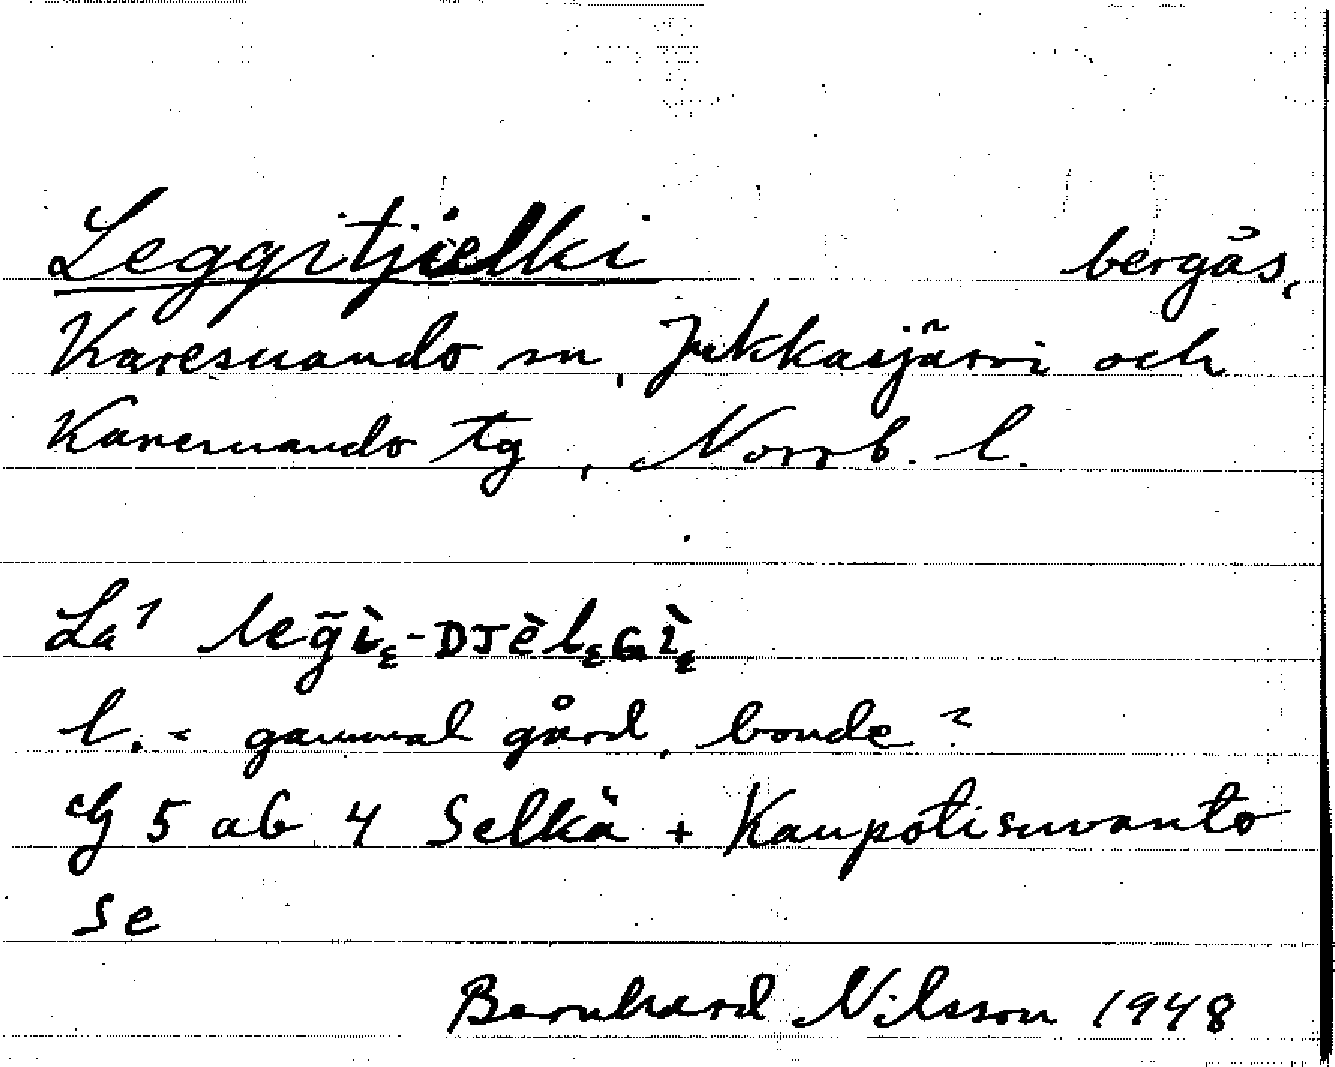 Leggitjielki bergås,
Karesuando sn, Jukkasjärvi och
Karesuando tg, Norrb. l.
La¹ leḡὶ˛-DJèl˛Gὶ˛
l. = gammal gård, bonde?
Eg 5 ab 4 Selkä + Kaupotisuvanto
Se
Bernhard Nilsson 1948